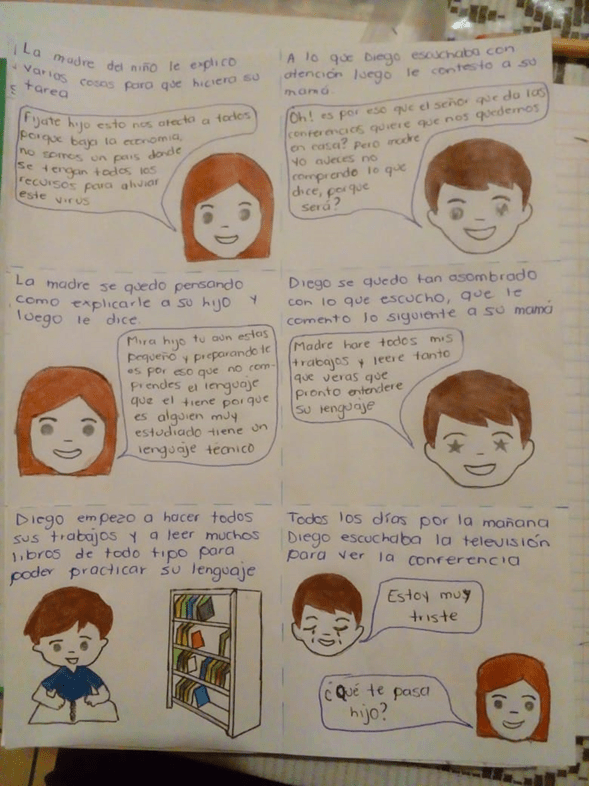 La madre del niño le explico
varias cosas para que hiciera su
tarea
Fijate hijo esto nos afecta a todos
porque baja la economia,
no somos un pais donde
se tengan todos los
recursos para aliviar
este virus
A lo que Diego escuchaba con
atención luego le contesto a su
mamá.
Oh! es por eso que el señor que da las
conferencias quiere que nos quedemos
en casa? Pero madre
yo aveces no
comprendo lo que
dice, porque
será?
La madre se quedo pensando
como explicarle a su hijo y
luego le dice.
Mira hijo tu aún estas
pequeño y preparandote
es por eso que no com-
prendes el lenguaje
que el tiene porque
es alguien muy
estudiado tiene un
lenguaje técnico
Diego se quedo tan asombrado
con lo que escucho, que le
comento lo siguiente a su mamá
Madre hare todos mis
trabajos y leere tanto
que veras que
pronto entendere
su lenguaje
Diego empezo a hacer todos
sus trabajos y a leer muchos
libros de todo tipo para
poder practicar su lenguaje
Todos los días por la mañana
Diego escuchaba la televisión
para ver la conferencia
Estoy muy
triste
¿Qué te pasa
hijo?